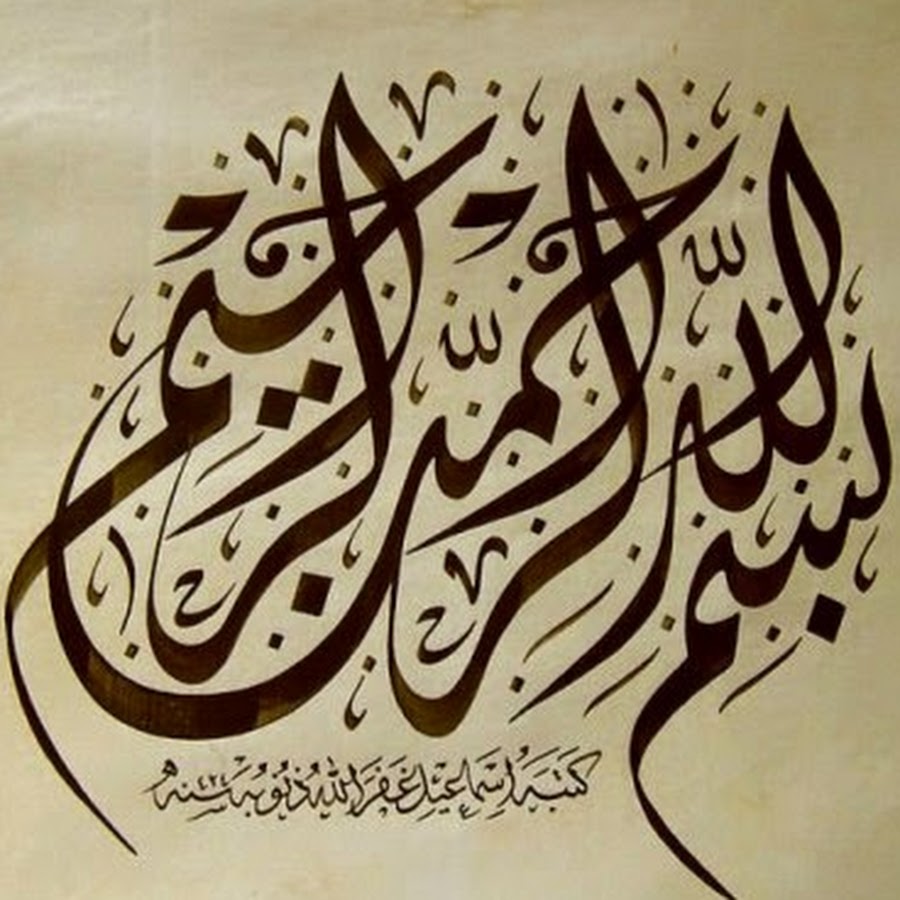 بِسْمِ اللّٰهِ الرَّحْمٰنِ الرَّحِيْمِ
كَتَبَهُ اِسْمَاعِيْل غَفَرَ اللّٰهُ ذُنُوْبَهُ سَنَه ١٤٢٤